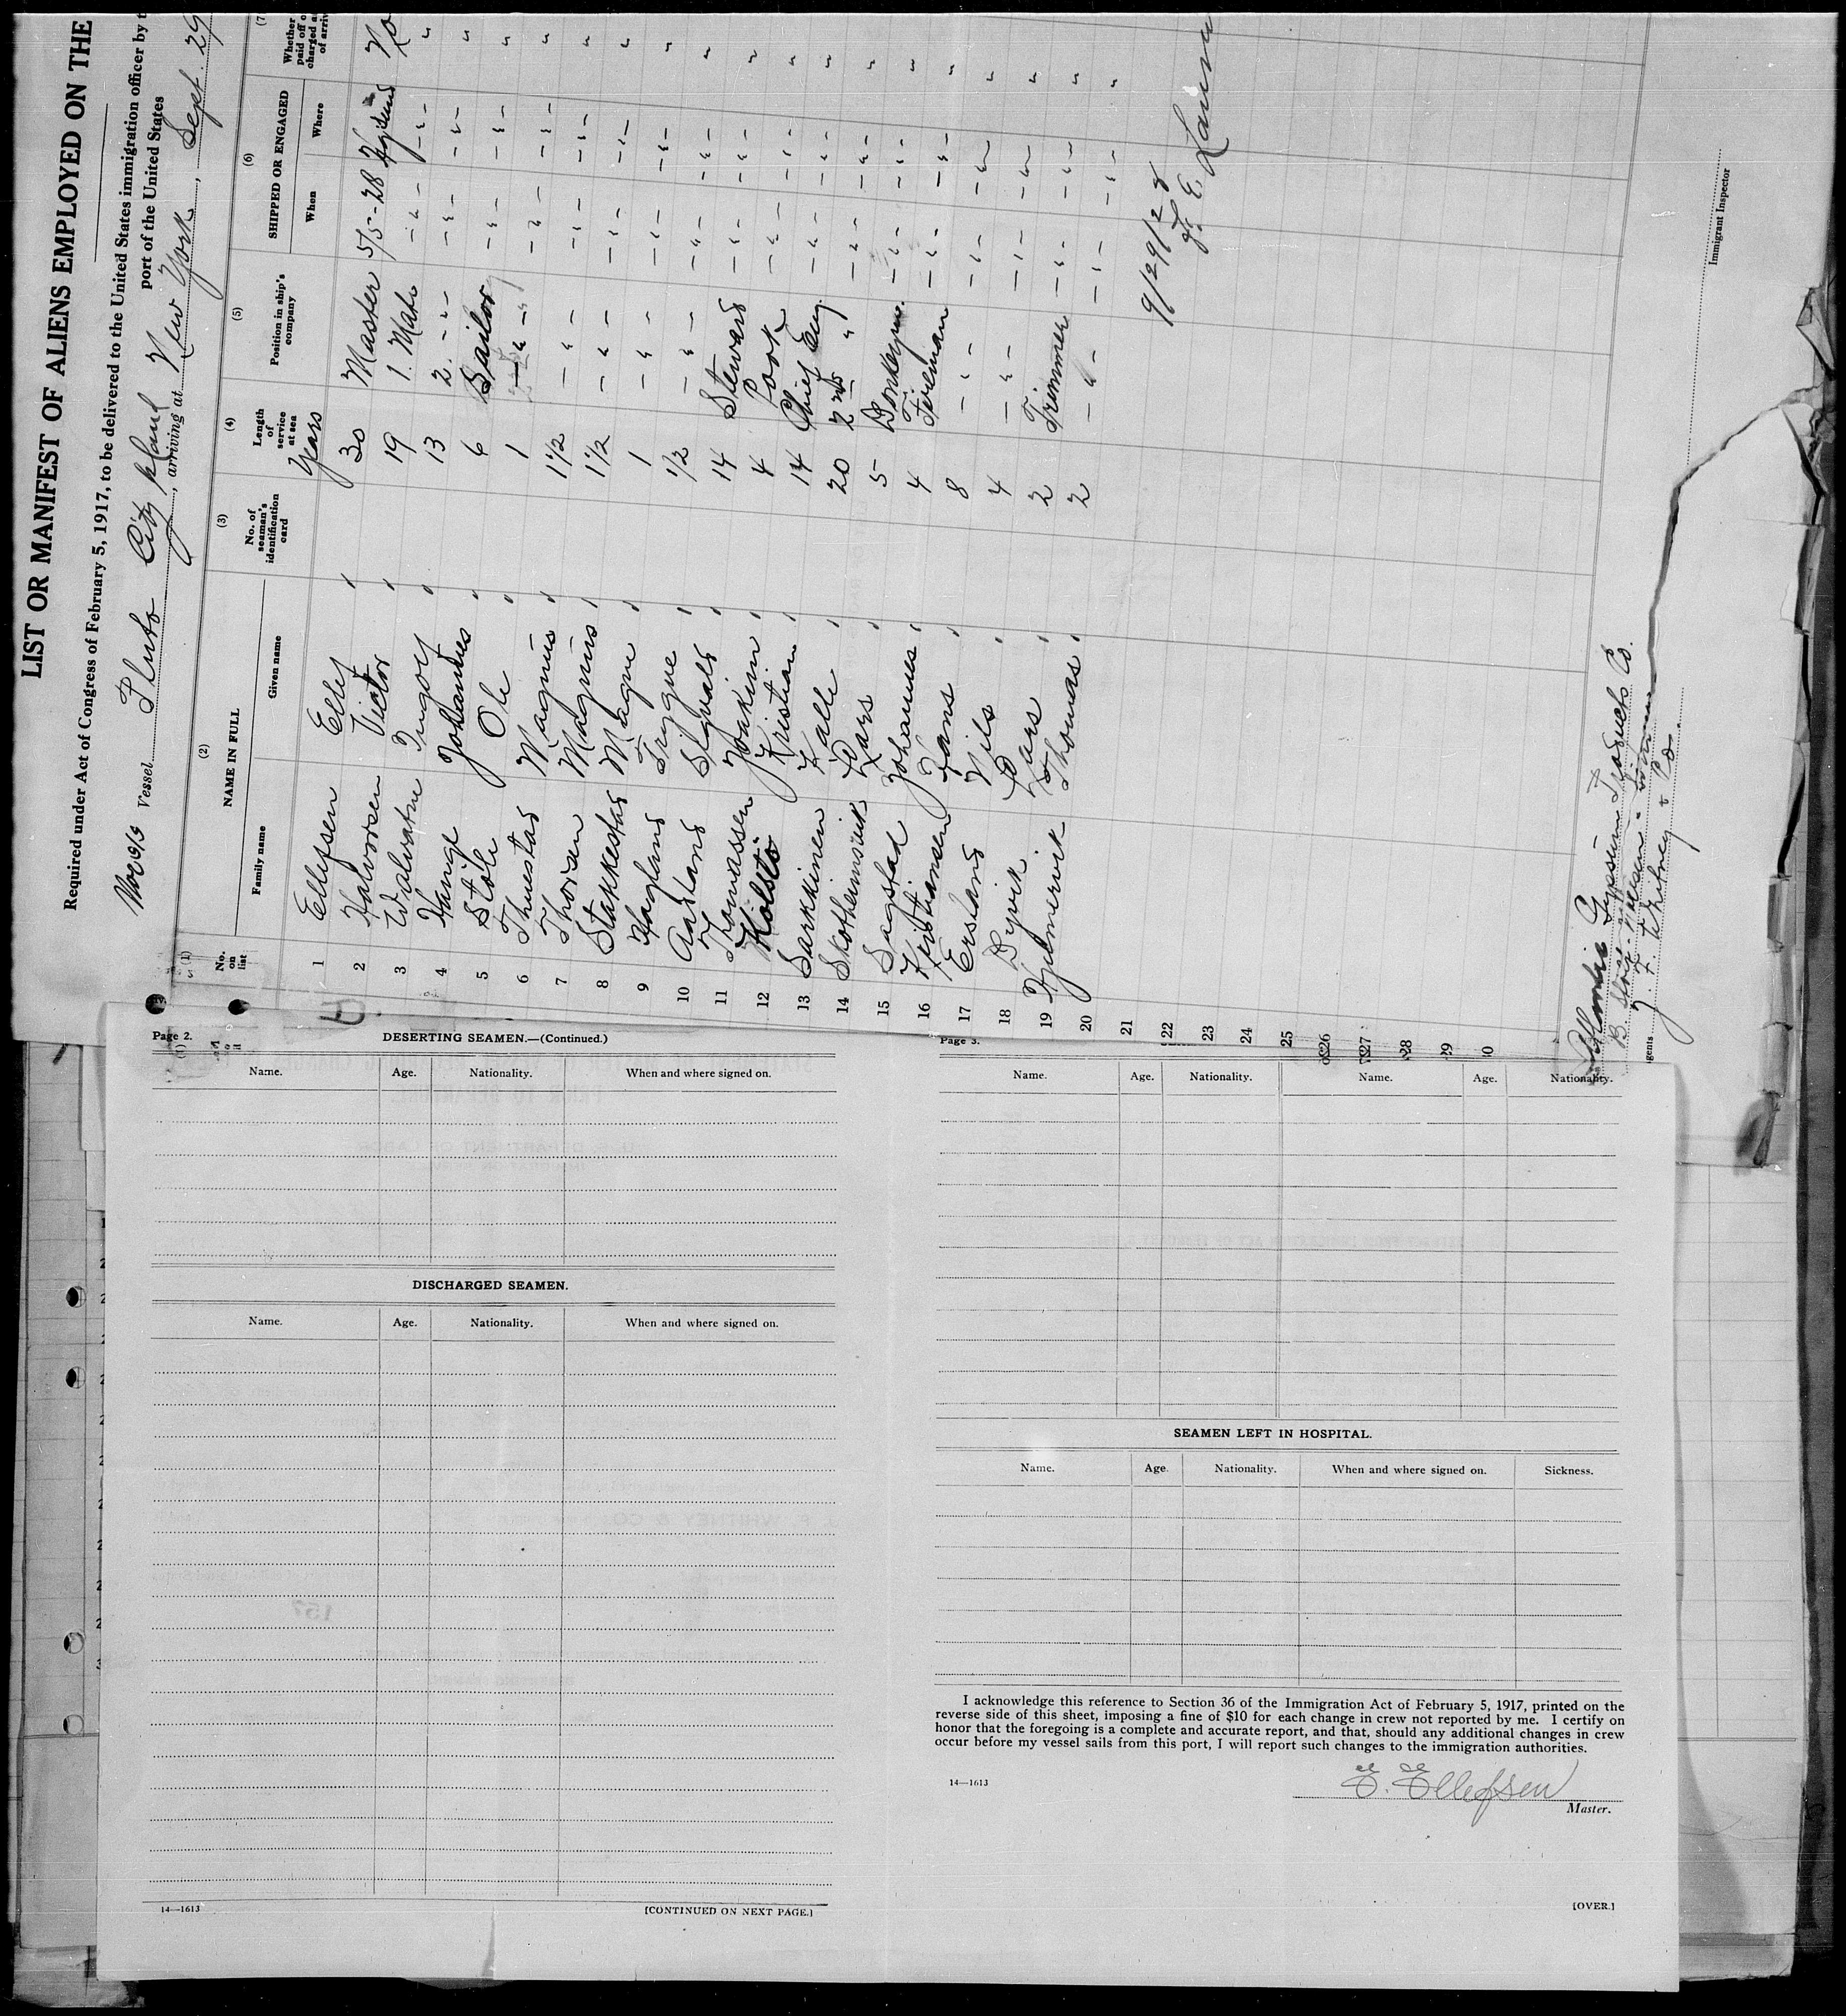 LIST OR MANIFEST OF ALIENS EMPLOYED ON THE
Required under Act of Congress of February 5, 1917, to be delivered to the United States immigration officer by
port of the United States
Vessel Pluto City Island, arriving at New York, Sept. 29
(1) (2) (3) (4) (5) (6) (7)
No. on list
NAME IN FULL
Family name Given name
No. of seaman's identification card
Length of service at sea
Position in ship's company
SHIPPED OR ENGAGED
When Where
Whether paid off
Years
1 Ellefsen Ellef 30 Master 5/5-28 No
2 Halvorsen Victor 19 1. Mate " " "
3 Ingolf 13 2. " " " "
4 Hauge Johannes 6 Sailor " " "
5 Støle Ole 1 " " " "
6 Thuestad Magnus 1 1/2 " " " "
7 Thorsen Magnus 1 1/2 " " " "
8 Stakkestad Magne 1 " " " "
9 Hagland Trygve 1/2 " " " "
10 Aasland Sigvald 14 Steward " " "
11 Thomassen Joakim 4 Cook " " "
12 Holstø Kristian 14 Chief Eng. " " "
13 Sarkkinen Kalle 20 2nd " " " "
14 Lars 5 Donkeym. " " "
15 Sagstad Johannes 4 Fireman " " "
16 Kristiansen Hans 8 " " " "
17 Ersland Nils 4 " " " "
18 Dyvik Lars 2 Trimmer " " "
19 Thomas 2 " " " "
20
21
22
23
24
25
26
27
28
29
30
9/29/28
Immigrant Inspector
Gypsum Products Co.
J. F. Whitney & Co.
Page 2.
DESERTING SEAMEN.—(Continued.)
Name. Age. Nationality. When and where signed on.
DISCHARGED SEAMEN.
Name. Age. Nationality. When and where signed on.
14—1613
[CONTINUED ON NEXT PAGE.]
Page 3.
Name. Age. Nationality. Name. Age. Nationality.
SEAMEN LEFT IN HOSPITAL.
Name. Age. Nationality. When and where signed on. Sickness.
I acknowledge this reference to Section 36 of the Immigration Act of February 5, 1917, printed on the
reverse side of this sheet, imposing a fine of $10 for each change in crew not reported by me. I certify on
honor that the foregoing is a complete and accurate report, and that, should any additional changes in crew
occur before my vessel sails from this port, I will report such changes to the immigration authorities.
14—1613
E. Ellefsen
Master.
[OVER.]